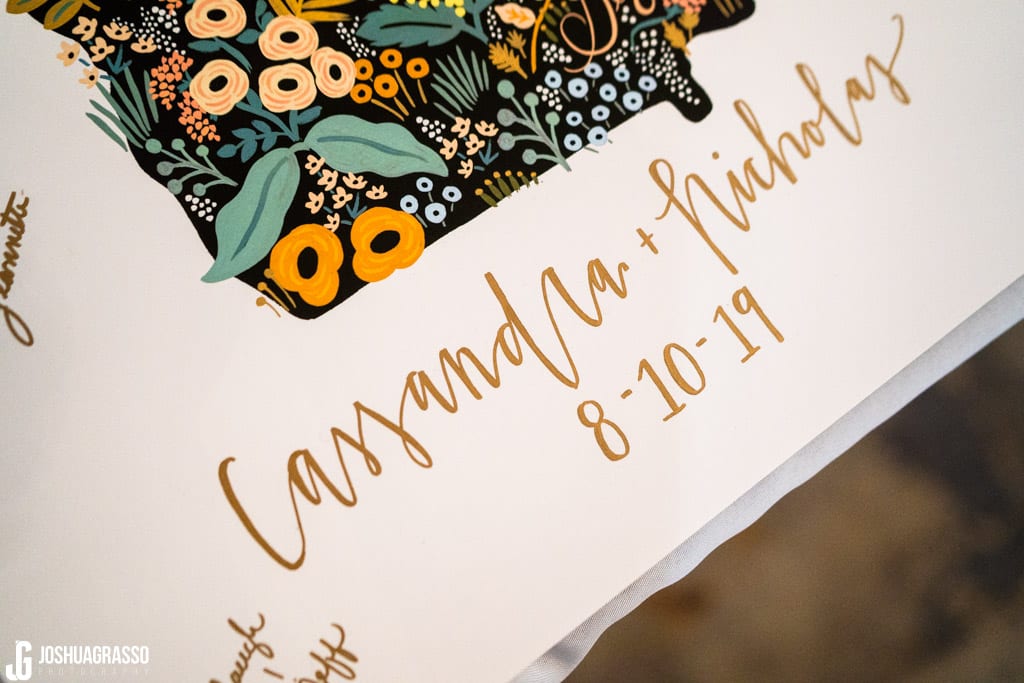 Cassandra + Nicholas
8-10-19
Jeff
JG JOSHUAGRASSO
PHOTOGRAPHY